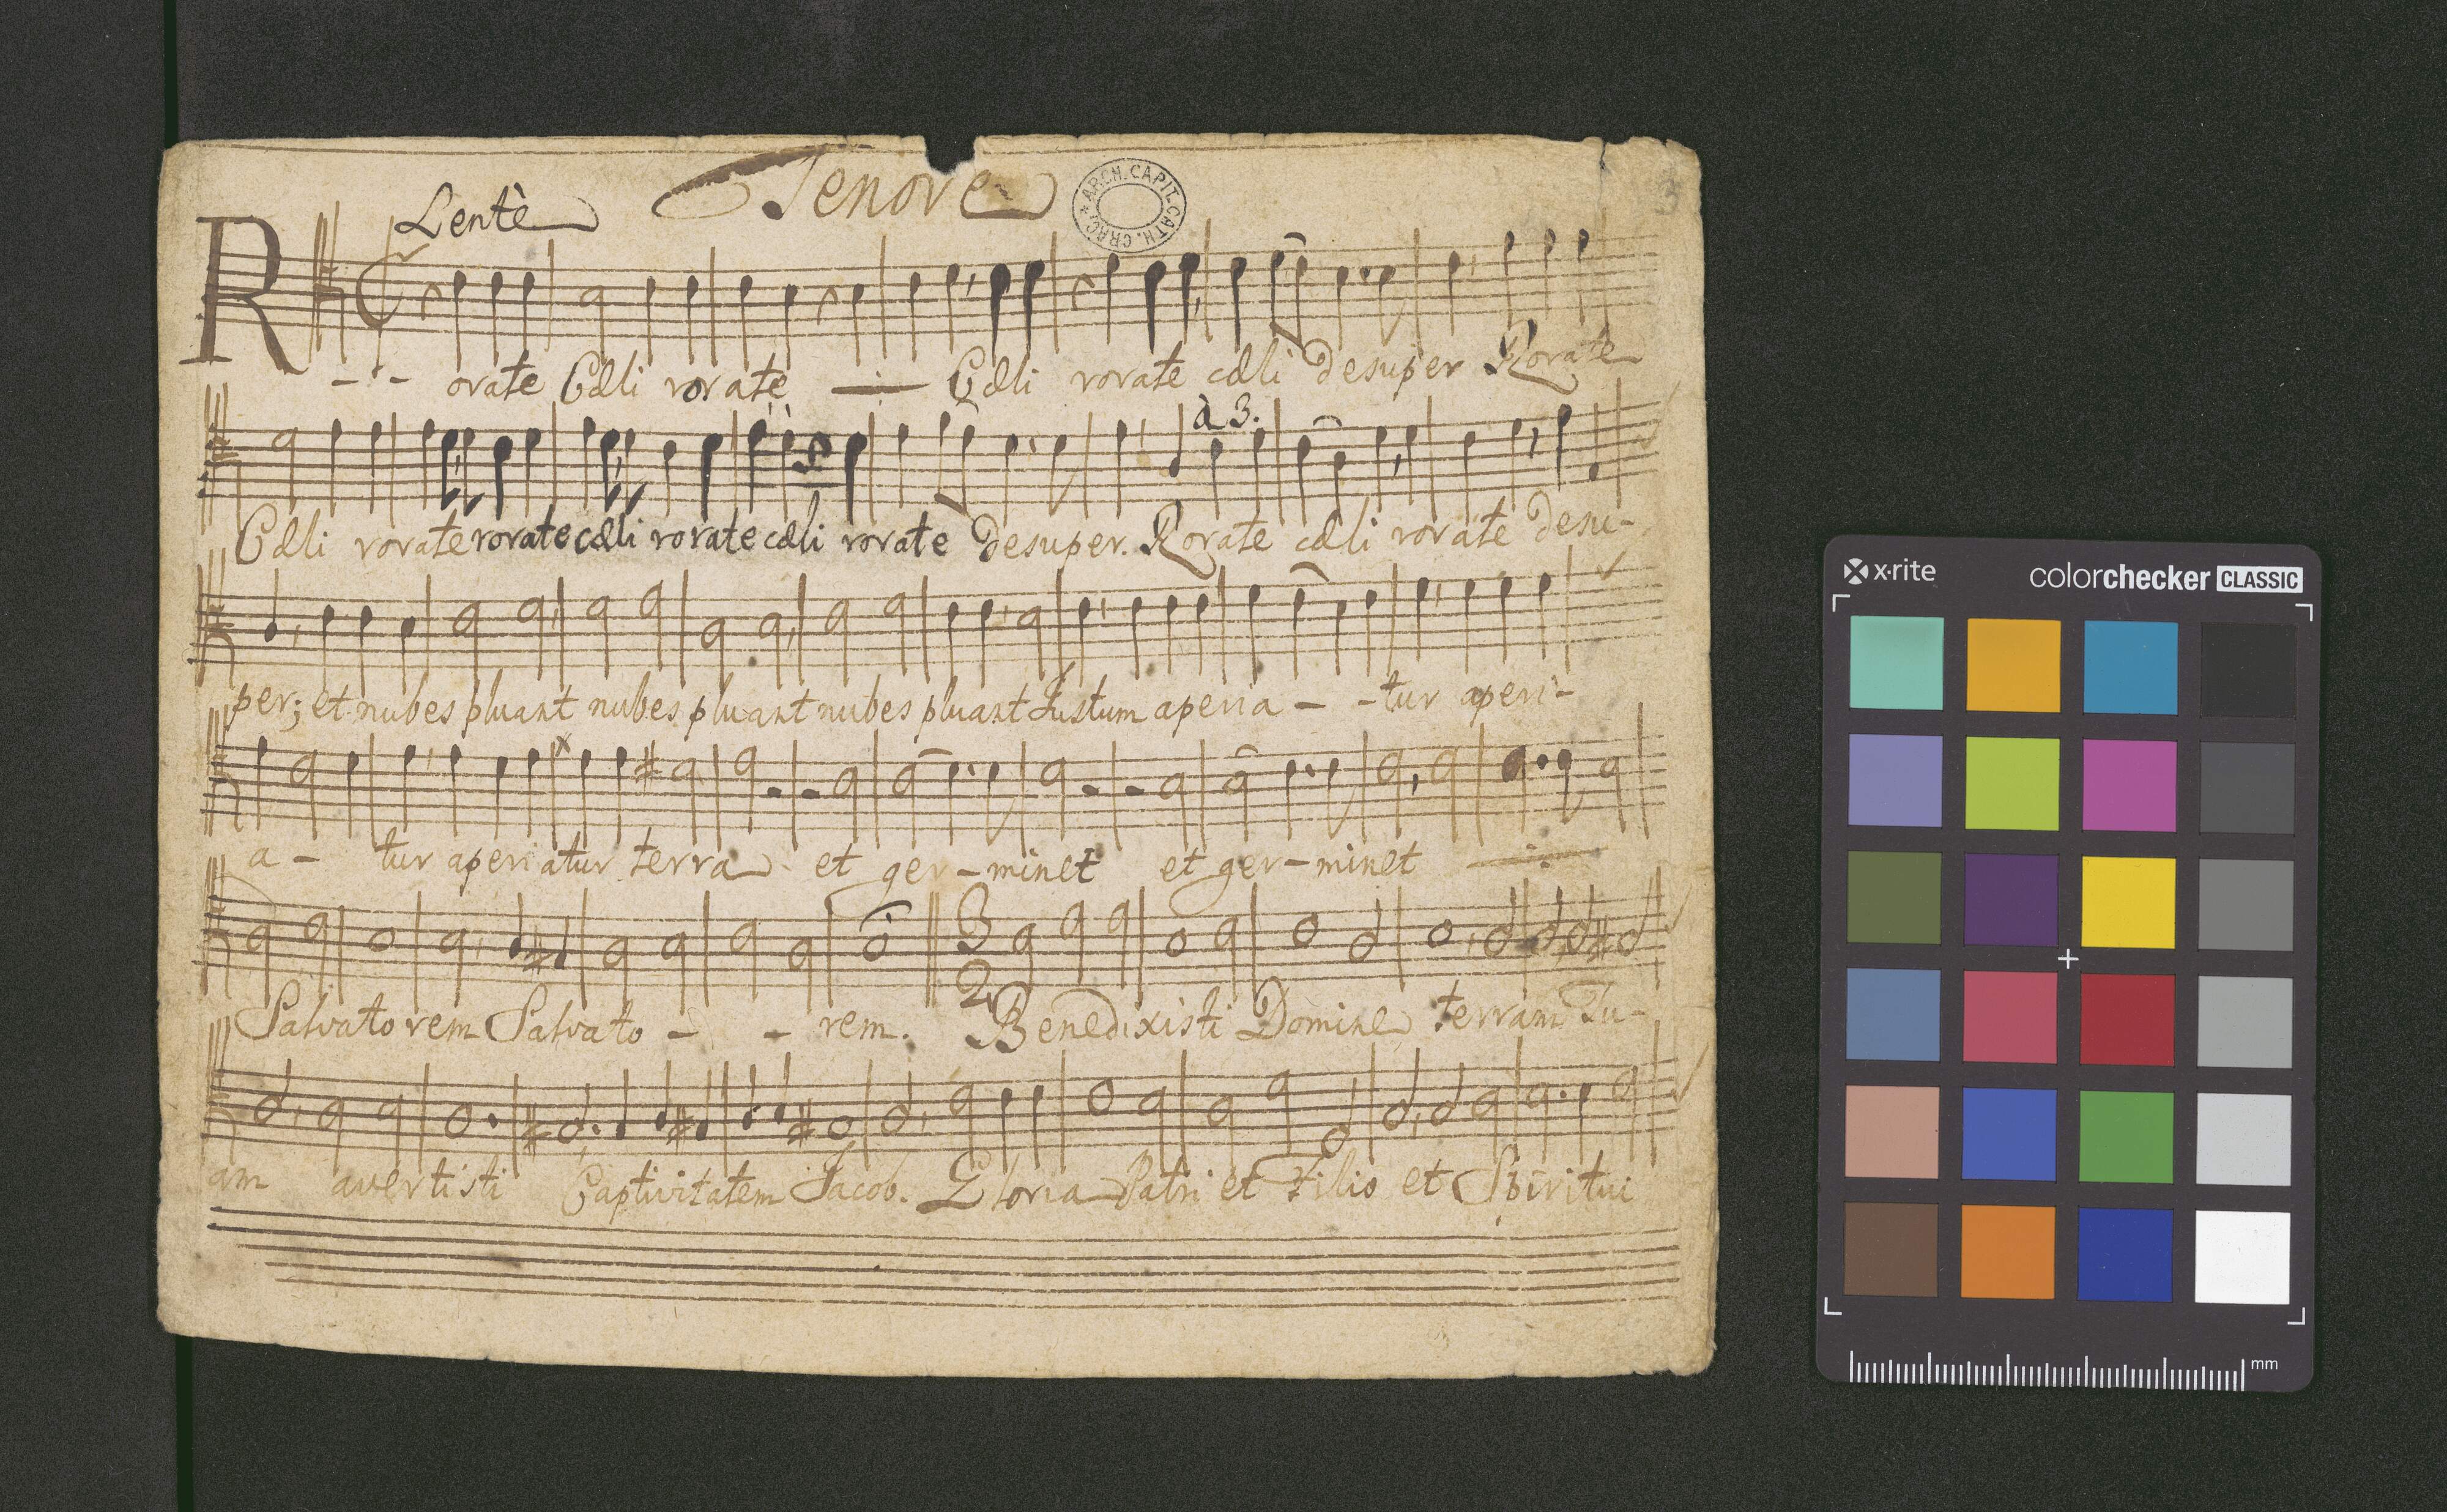 Tenore
ARCH. CAPIT. CATH. CRAC.
3
Lentè
R - - orate Cæli rorate Cæli rorate cæli Desuper Rorate
à 3.
Cæli rorate rorate cæli rorate cæli rorate Desuper. Rorate cæli rorate Desu-
per; et nubes pluant nubes pluant nubes pluant Justum aperia - - tur aperi-
a - tur aperiatur terra et ger - minet et ger - minet
3
2
Salvatorem Salvato - - rem. Benedixisti Domine terram Tu-
am avertisti Captivitatem Jacob. Gloria Patri et Filio et Spiritui
x·rite colorchecker CLASSIC
mm